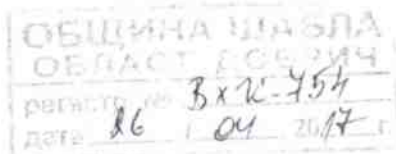 ОБЩИНА ШАБЛА
ОБЛАСТ ДОБРИЧ
регистр. № ВхК-754
дата 26 / 04 2017 г.